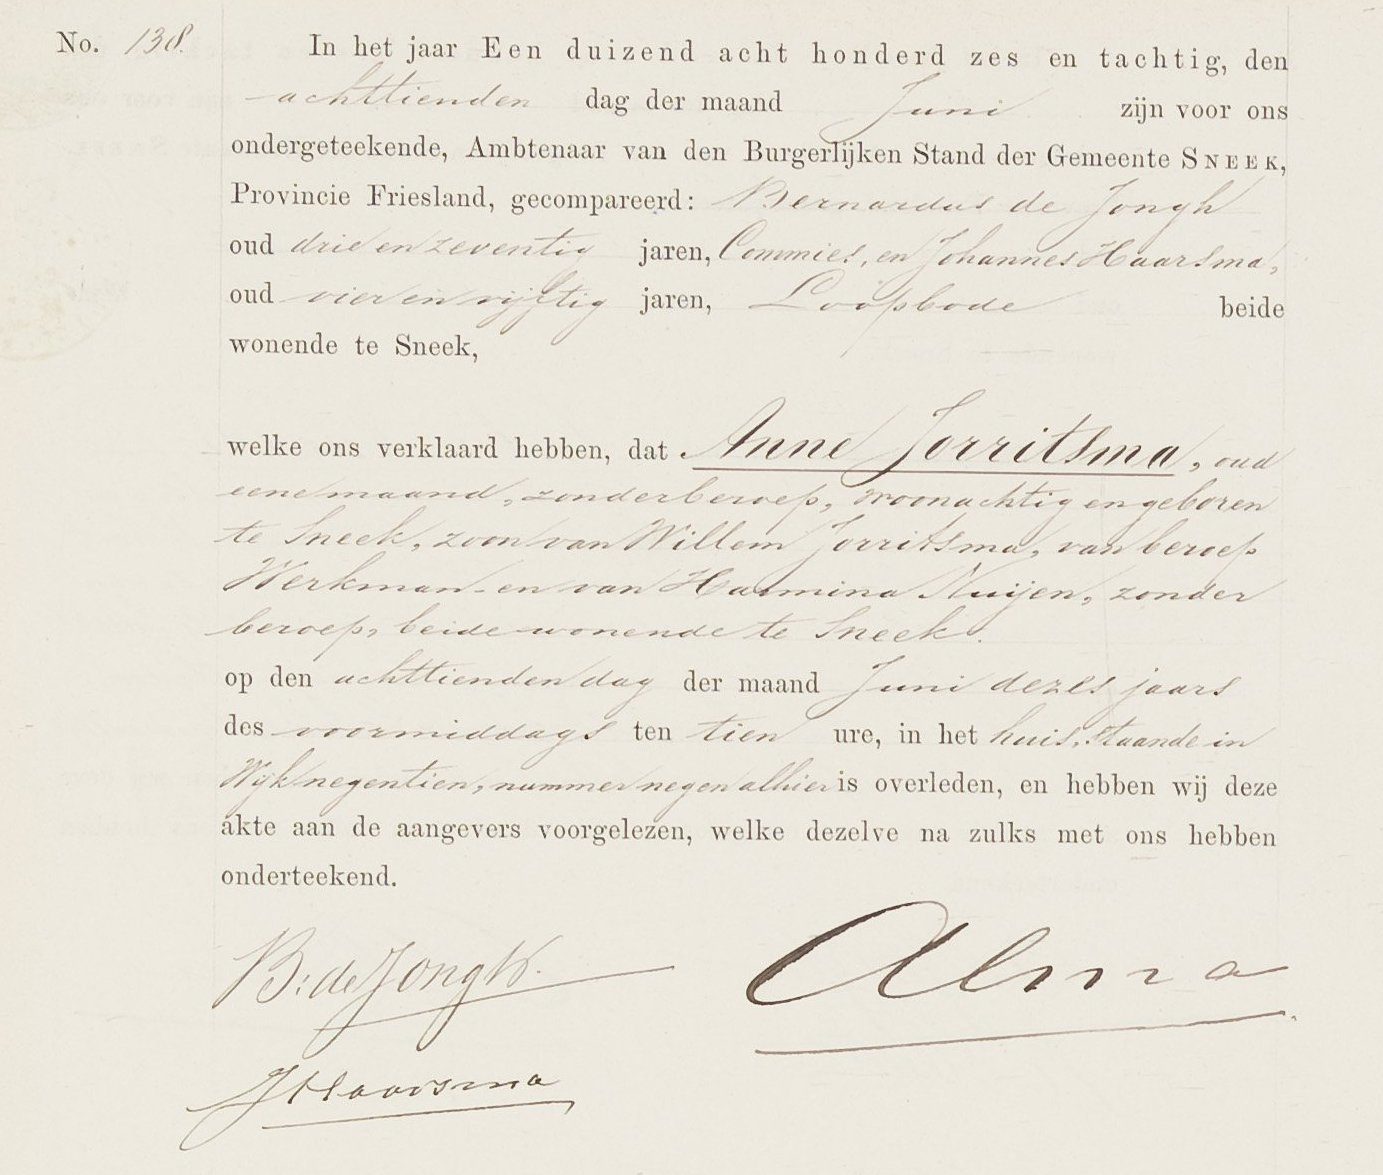 No. 138. In het jaar Een duizend acht honderd zes en tachtig, den
achttienden dag der maand Juni zijn voor ons
ondergeteekende, Ambtenaar van den Burgerlijken Stand der Gemeente SNEEK,
Provincie Friesland, gecompareerd: Bernardus de Jongh
oud drie en zeventig jaren, Commies, en Johannes Haarsma,
oud vier en vijftig jaren, Loopbode beide
wonende te Sneek,
welke ons verklaard hebben, dat Anne Jorritsma, oud
eene maand, zonder beroep, woonachtig en geboren
te Sneek, zoon van Willem Jorritsma, van beroep
Werkman en van Harmina Nuijen, zonder
beroep, beide wonende te Sneek.
op den achttienden dag der maand Juni dezes jaars
des voormiddags ten tien ure, in het huis, staande in
Wijk negentien, nummer negen alhier is overleden, en hebben wij deze
akte aan de aangevers voorgelezen, welke dezelve na zulks met ons hebben
onderteekend.
B: de Jongh. Alma
J Haarsma